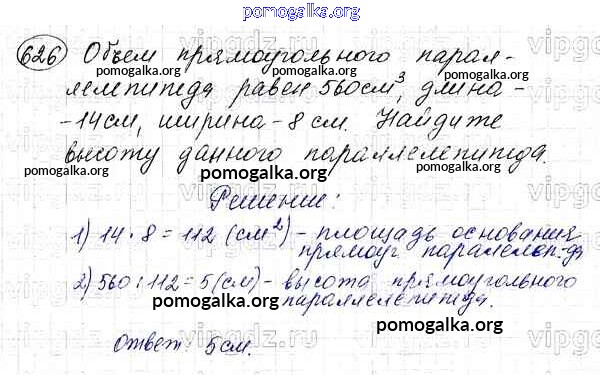 pomogalka.org
626 Объем прямоугольного парал-
pomogalka.org
лелепипеда равен 560 см³, длина -
- 14 см, ширина - 8 см. Найдите
pomogalka.org
высоту данного параллелепипеда.
pomogalka.org
Решение:
1) 14 · 8 = 112 (см²) - площадь основания
pomogalka.org
прямоуг параллелеп-да
2) 560 : 112 = 5 (см) - высота прямоугольного
pomogalka.org
параллелепипеда.
pomogalka.org
Ответ: 5 см.
pomogalka.org